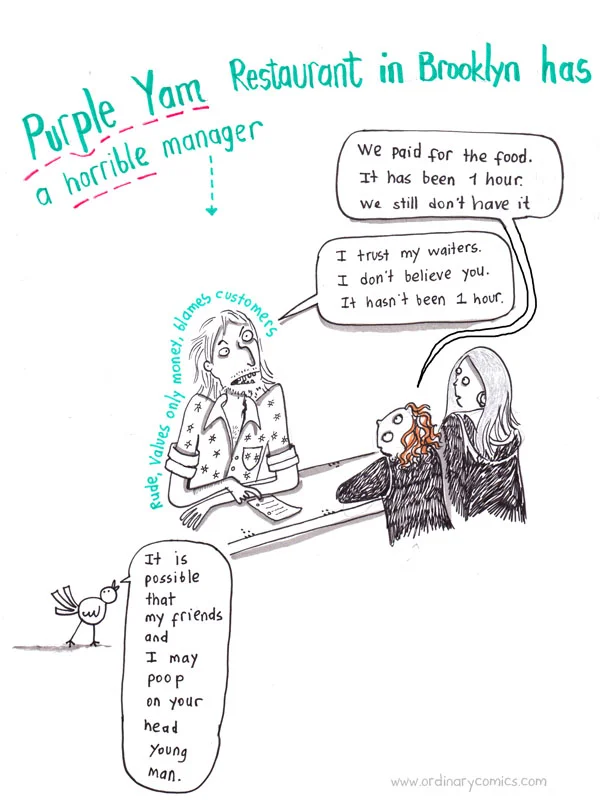 Purple Yam Restaurant in Brooklyn has
a horrible manager
We paid for the food.
It has been 1 hour.
We still don't have it
I trust my waiters.
I don't believe you.
It hasn't been 1 hour.
Rude, Values only money, blames customers
It is
possible
that
my friends
and
I may
poop
on your
head
young
man.
www.ordinarycomics.com